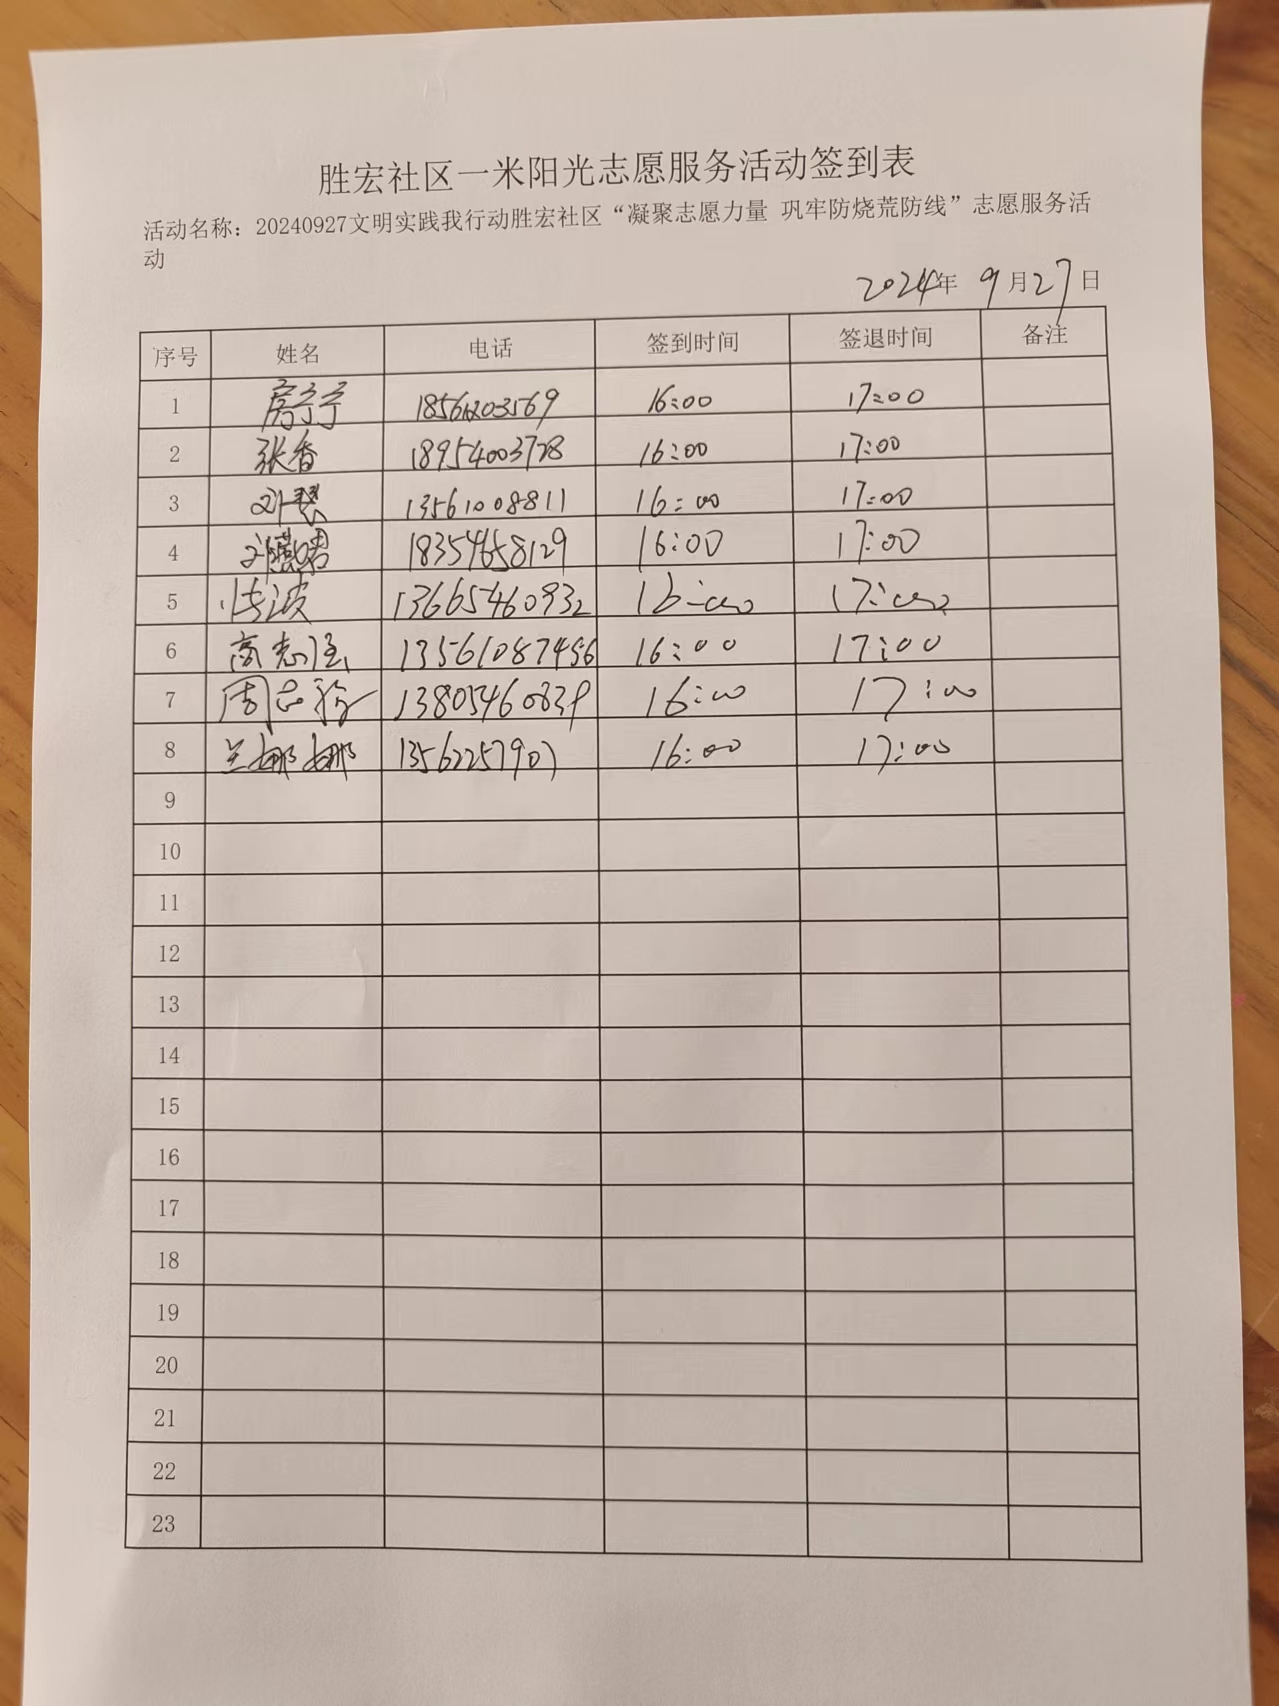 胜宏社区一米阳光志愿服务活动签到表
活动名称：20240927文明实践我行动胜宏社区“凝聚志愿力量 巩牢防烧荒防线”志愿服务活
动
2024年 9月27日
序号 姓名 电话 签到时间 签退时间 备注
1 房宁宁 16:00 17:00
2 张香 18954003728 16:00 17:00
3 刘琴 13561008811 16:00 17:00
4 18354658129 16:00 17:00
5 13665460932 16:00 17:00
6 高志强 13561087456 16:00 17:00
7 周 16:00 17:00
8 兰娜娜 13562257907 16:00 17:00
9
10
11
12
13
14
15
16
17
18
19
20
21
22
23